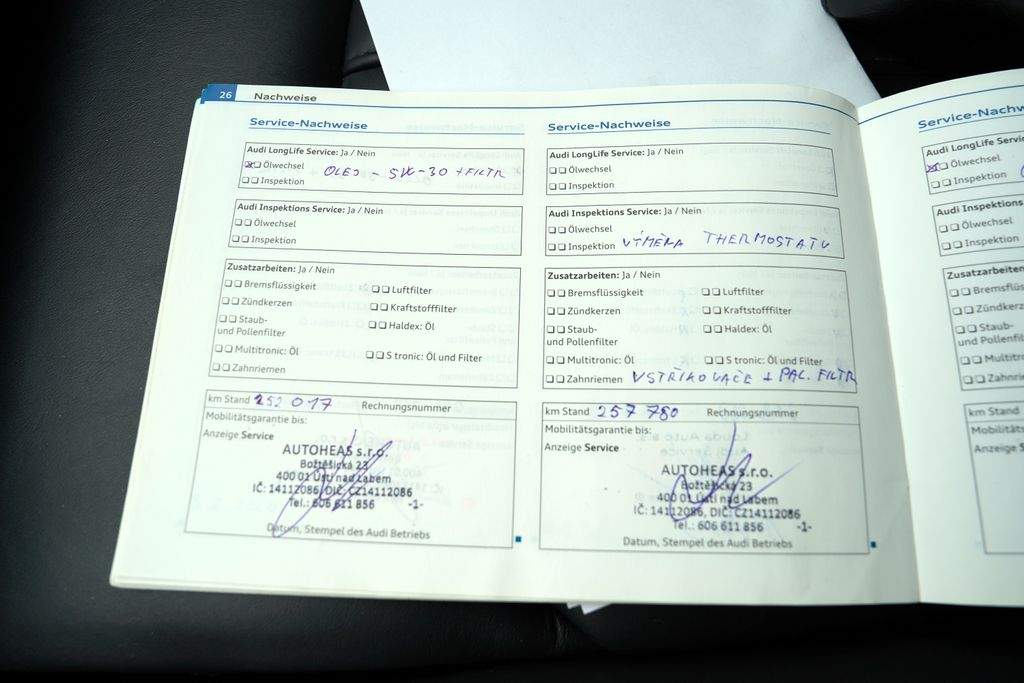 26 Nachweise
Service-Nachweise
Audi LongLife Service: Ja / Nein
Ölwechsel OLEJ - 5W-30 + FILTR
Inspektion
Audi Inspektions Service: Ja / Nein
Ölwechsel
Inspektion
Zusatzarbeiten: Ja / Nein
Bremsflüssigkeit Luftfilter
Zündkerzen Kraftstofffilter
Staub- Haldex: Öl
und Pollenfilter
Multitronic: Öl S tronic: Öl und Filter
Zahnriemen
km Stand 252 017 Rechnungsnummer
Mobilitätsgarantie bis:
Anzeige Service
AUTOHEAS s.r.o.
Božtěšická 23
400 01 Ústí nad Labem
IČ: 14112086, DIČ: CZ14112086
Tel.: 606 611 856 -1-
Datum, Stempel des Audi Betriebs
Service-Nachweise
Audi LongLife Service: Ja / Nein
Ölwechsel
Inspektion
Audi Inspektions Service: Ja / Nein
Ölwechsel
Inspektion VÝMĚNA THERMOSTATU
Zusatzarbeiten: Ja / Nein
Bremsflüssigkeit Luftfilter
Zündkerzen Kraftstofffilter
Staub- Haldex: Öl
und Pollenfilter
Multitronic: Öl S tronic: Öl und Filter
Zahnriemen VSTŘIKOVAČE + PAL. FILTR
km Stand 257 780 Rechnungsnummer
Mobilitätsgarantie bis:
Anzeige Service
AUTOHEAS s.r.o.
Božtěšická 23
400 01 Ústí nad Labem
IČ: 14112086, DIČ: CZ14112086
Tel.: 606 611 856 -1-
Datum, Stempel des Audi Betriebs
Service-Nachw
Audi LongLife Serv
Ölwechsel
Inspektion
Audi Inspektions
Ölwechsel
Inspektion
Zusatzarbeiten
Bremsflüss
Zündkerz
Staub-
und Pollenfil
Multitro
Zahnrie
km Stand
Mobilitäts
Anzeige S